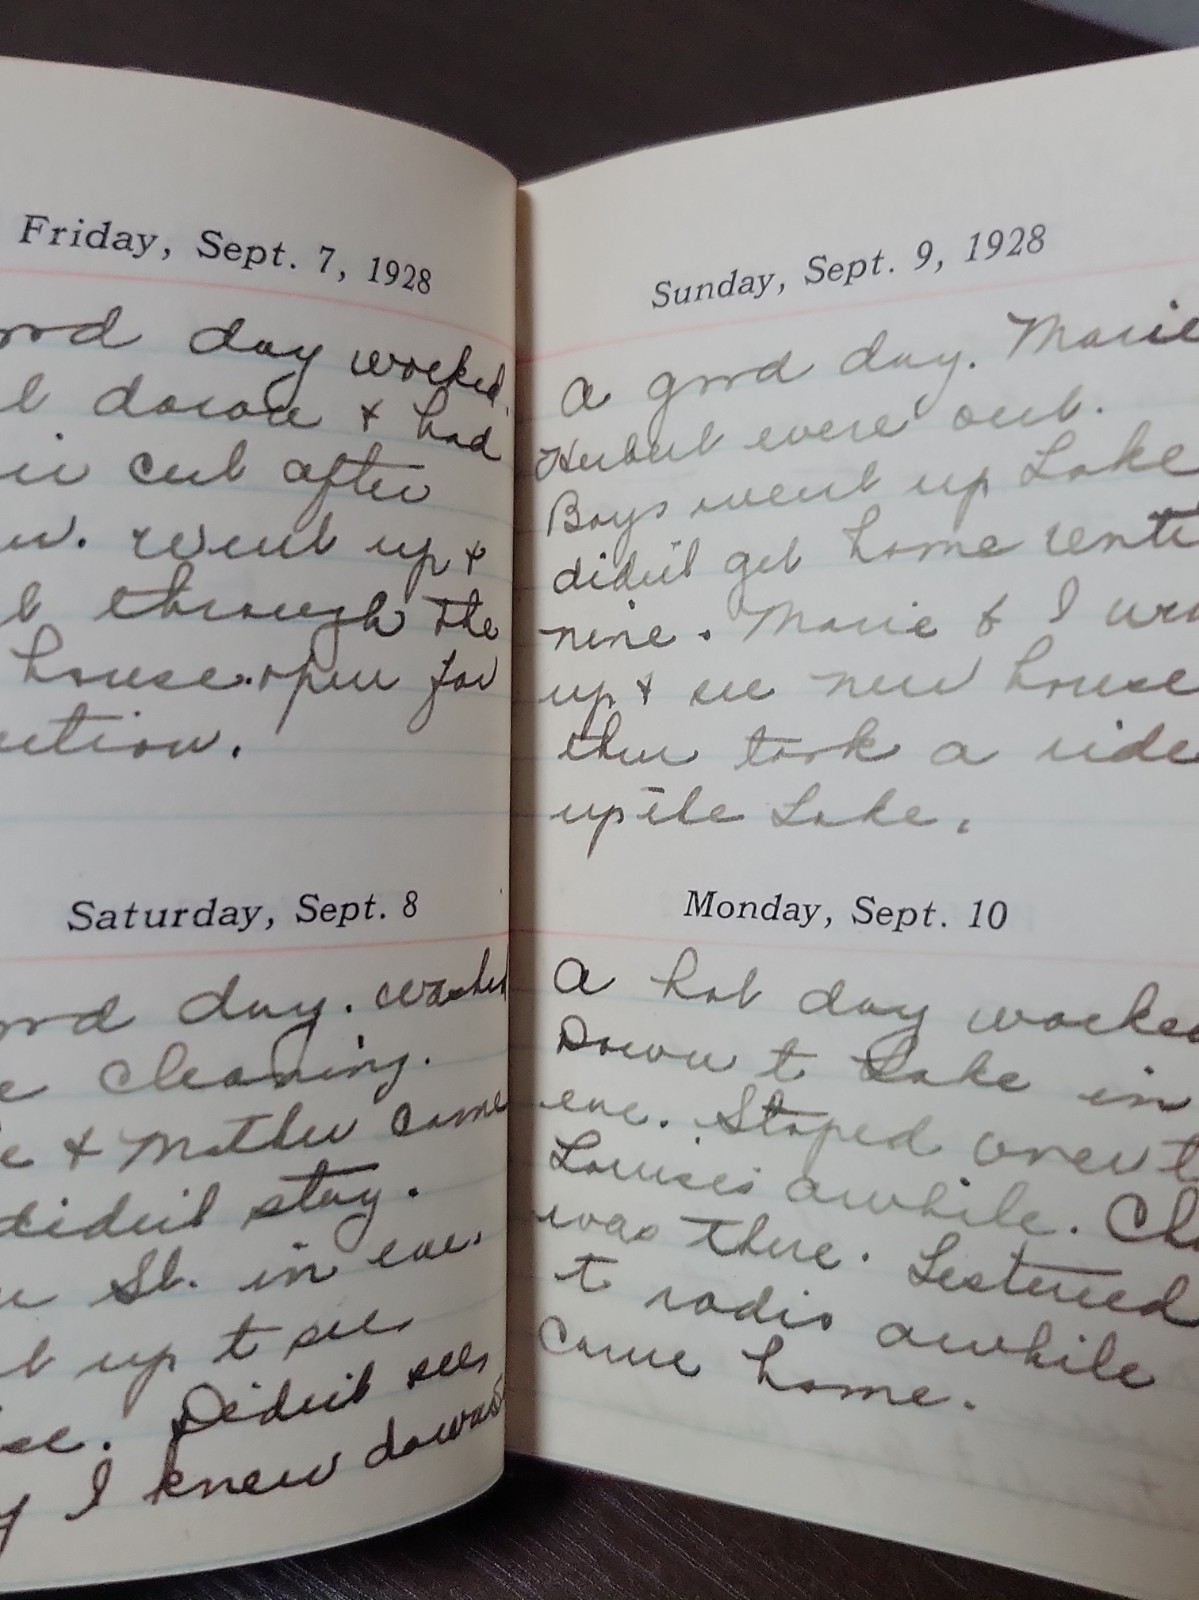 Friday, Sept. 7, 1928
ood day worked.
l down & had
cut after
w. went up &
t through the
house. open for
ection.
Saturday, Sept. 8
ood day. washed
e cleaning.
e & Mother came
didn't stay.
n St. in eve.
t up to see
se. Didn't see
y I knew down st
Sunday, Sept. 9, 1928
A good day. Marie
Herbert were out.
Boys went up Lake
didn't get home unti
nine. Marie & I wen
up & see new house
then took a ride
up the Lake.
Monday, Sept. 10
A hot day worked
Down t Lake in
eve. Stoped over t
Louise's awhile. Cha
was there. Lestened
t radio awhile
Came home.